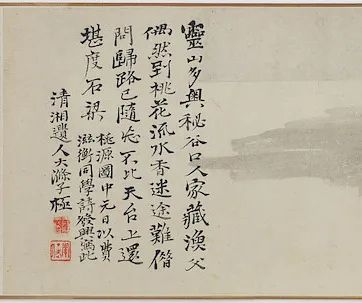 靈山多奧秘谷口人家藏漁父
偶然到桃花流水香迷途難借
問歸路已隨忘不比天台上還
堪度石梁
桃源圖中元日以費
滋衡同學詩發興為此
清湘遺人大滌子極